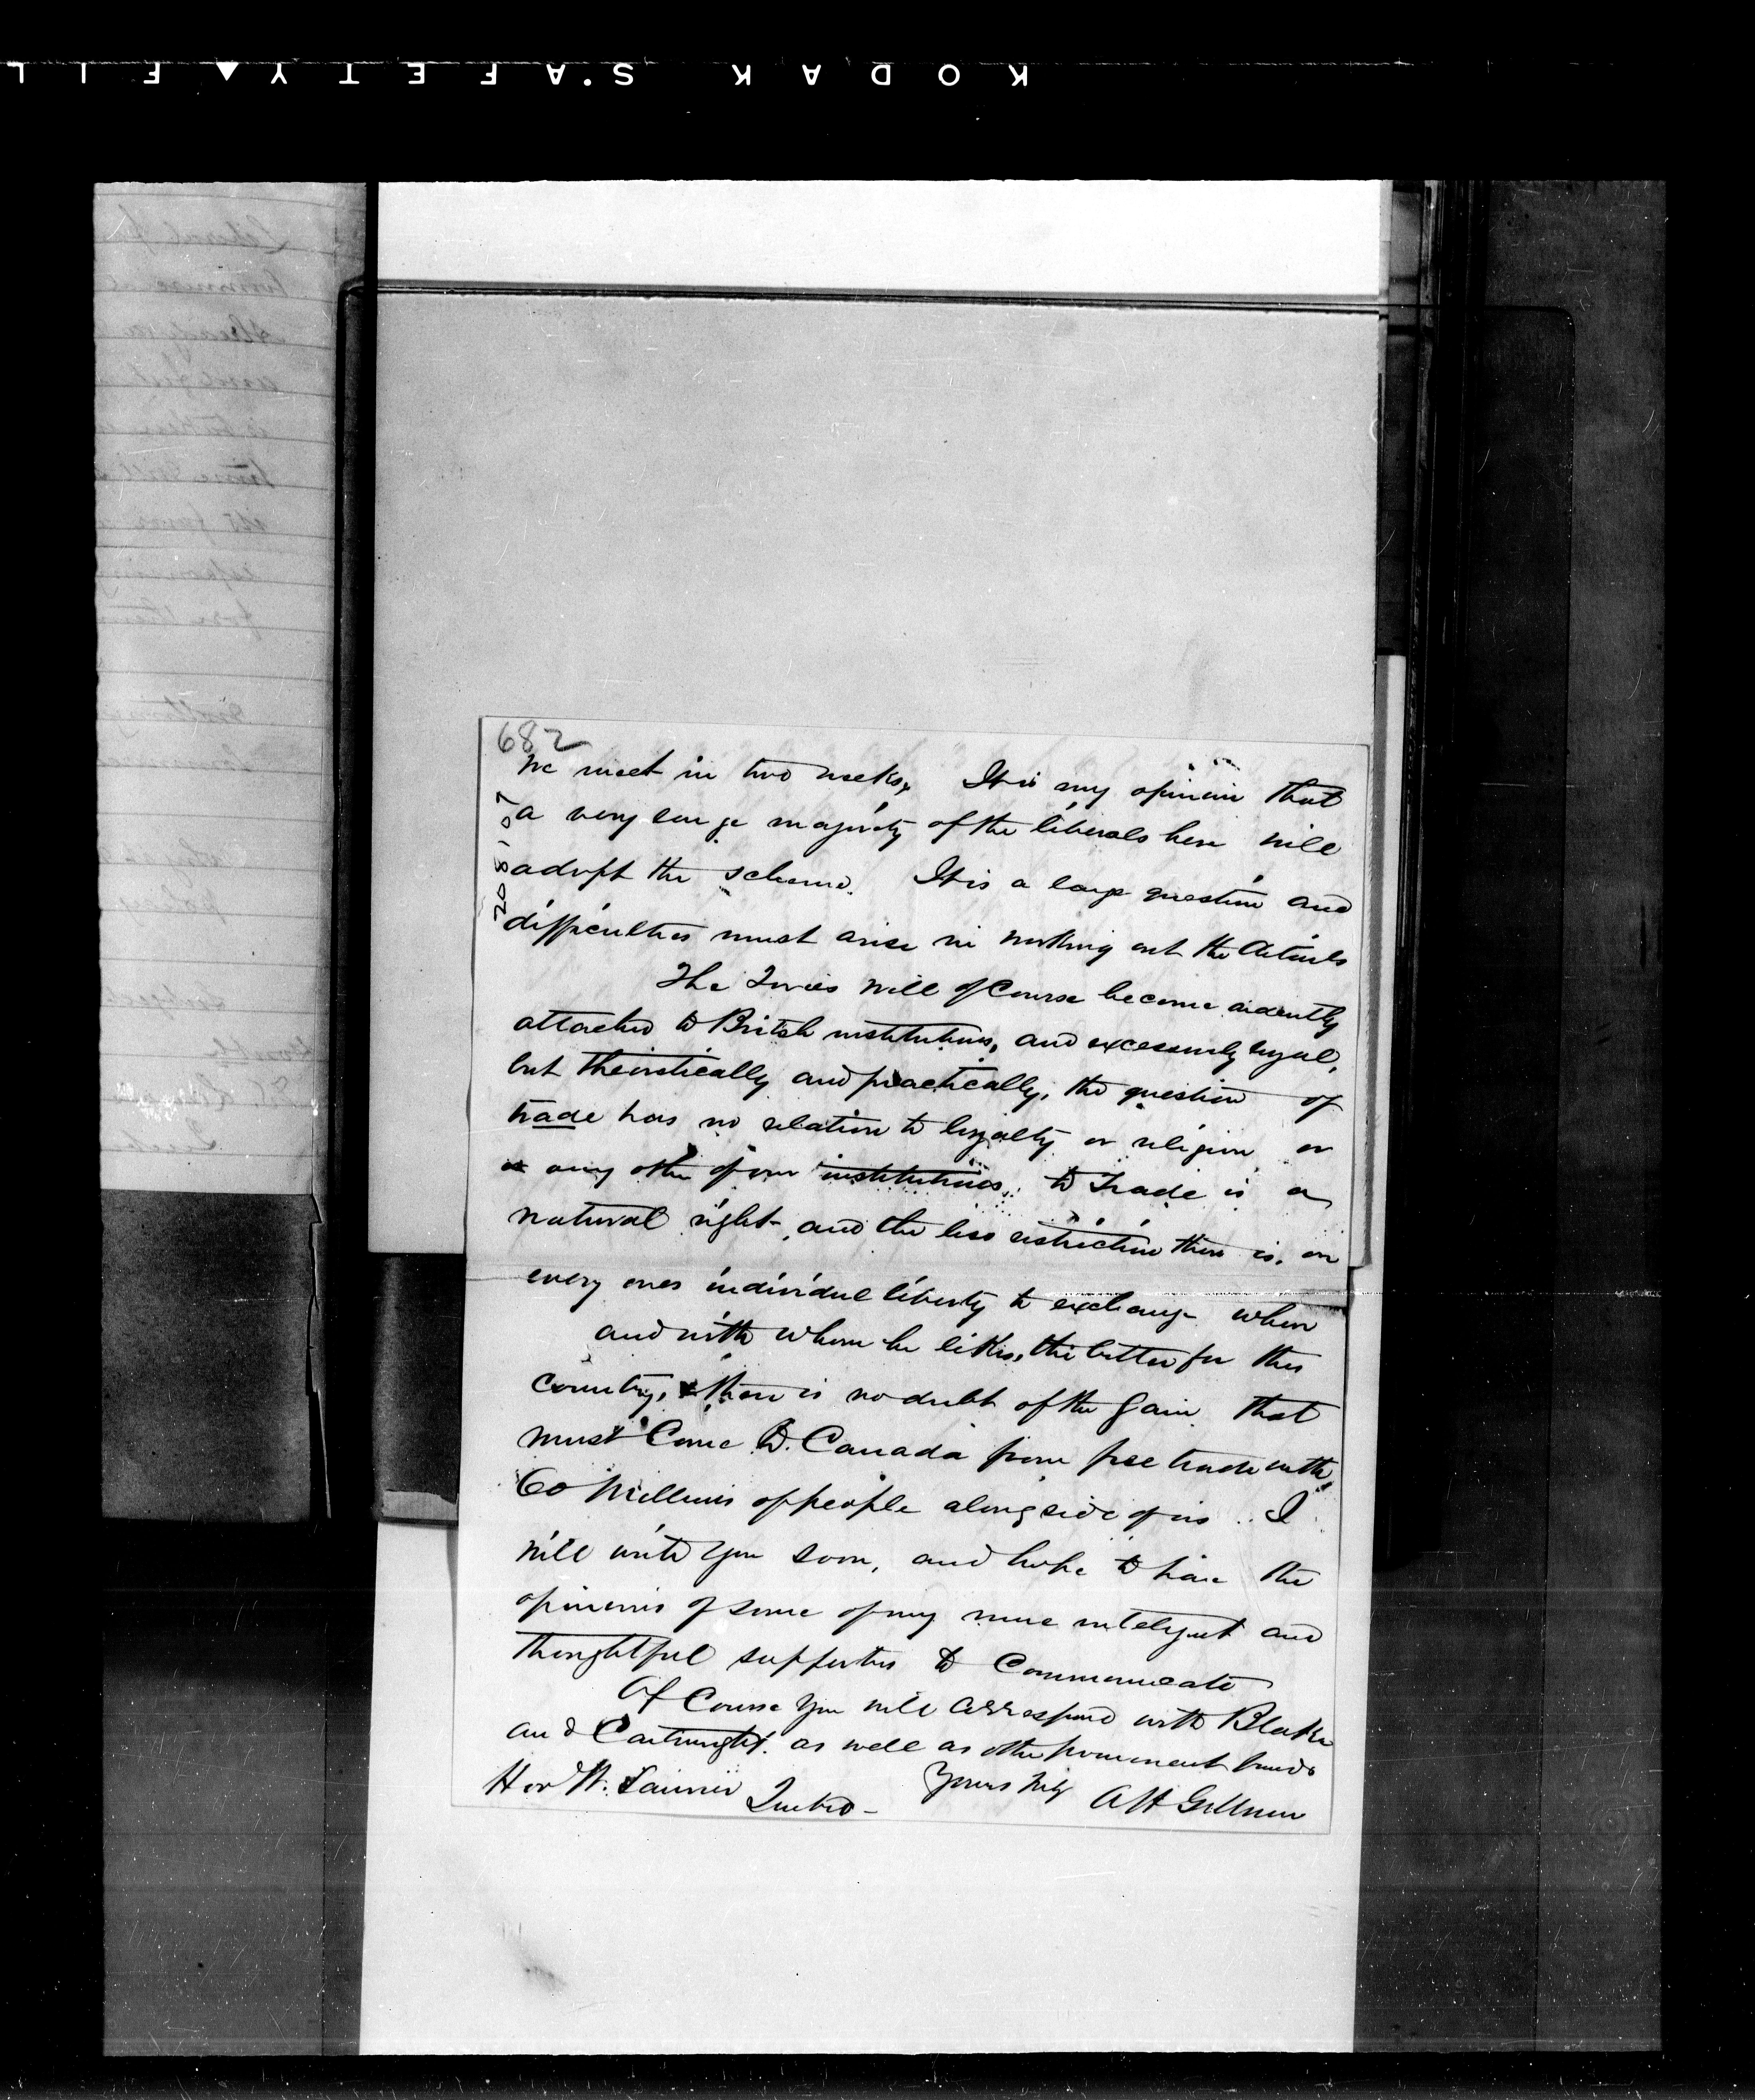 KODAK SAFETY FIL
682
208107
we meet in two weeks. It is my opinion that
a very large majority of the liberals here will
adopt the scheme. It is a large question and
difficulties must arise in working out the details
The Tories will of Course become ardently
attached to British institutions, and excessively loyal,
but theoretically and practically, the question of
trade has no relation to loyalty or religion or
any other of our institutions, to Trade is a
natural right, and the less restriction there is, on
every ones individual liberty to exchange when
and with whom he likes, the better for the
country, there is no doubt of the gain that
must Come to Canada from free trade with
60 Millions of people along side of us. I
will write you soon, and hope to have the
opinions of some of my more intelligent and
thoughtful supporters to Communicate
Of Course you will correspond with Blake
and Cartwright. as well as other prominent friends
Yours truly A H Gillmor
Hon W. Laurier Quebec